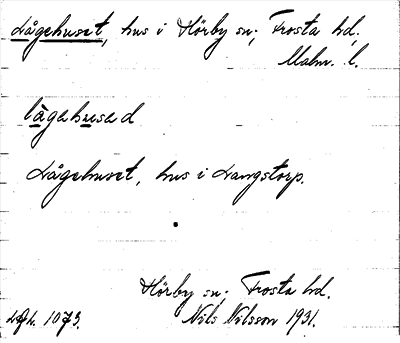 Lågehuset, hus i Hörby sn; Frosta hd.
Malm. l.
lågahusad
Lågehuset, hus i Langstorp.
Hörby sn; Frosta hd.
Nils Nilsson 1931.
1073.